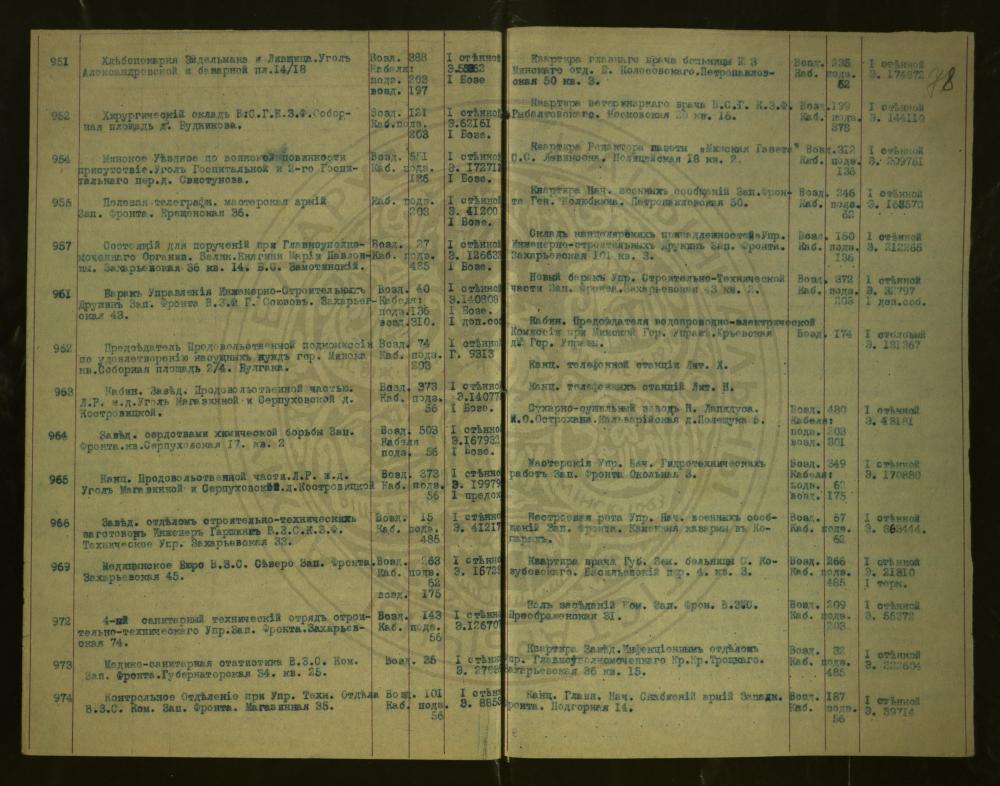 951 Хлѣбопекарня Эйдельмана и Лившица.Уголъ Возд. 388 I стѣнной
Александровской и базарной пл.14/18 Кабеля: Э.
подз. 203 I Бозе
возд. 197
952 Хирургическій складъ В.С.Г.К.З.Ф.Собор- Возд. 121 I стѣнной
ная площадь д. Каб.подз. Э.62161
203 I Бозе.
954 Минское Уѣздное по воинской повинности Возд. 551 I стѣнной
присутствіе.Уголъ Госпитальной и 2-го Госпи- Каб. подз. Э.
тальнаго пер.д. Свистунова. 136 I Бозе.
955 Полевая телеграфн. мастерская армій Каб. подз. I стѣнной
Зап. Фронта. Крещенская 36. 203 Э. 41200
I Бозе.
957 Состоящій для порученій при Главноуполно- Возд. 27 I стѣнной
моченнаго Организ. Велик.Княгини Маріи Павлов- Каб. подз. Э.
ны. Захарьевская 36 кв. 14. В.С. Замотинскій. 485 I Бозе.
961 Баракъ Управленія Инженерно-Строительныхъ Возд. 40 I стѣнной
Дружинъ Зап. Фронта В.З.и Г. Союзовъ. Захарьев- Кабеля: Э.140808
ская 43. подз.136 I Бозе.
возд.310. I доп.соб
962 Предсѣдатель Продовольственной подкомиссіи Возд. 74 I стѣнной
по удовлетворенію насущныхъ нуждъ гор. Минска Каб. подз. Г. 9313
кв.Соборная площадь 2/4. Вулгака. 203
963 Кабин. Завѣд. Продовольственной частью. Возд. 373 I стѣнной
Л.Р. ж.д.Уголъ Магазинной и Серпуховской д. Каб. подз. Э.
Костровицкой. 56 I Бозе.
964 Завѣд. средствами химической борьбы Зап. Возд. 503 I стѣнной
Фронта.кв.Серпуховская 17. кв. 2 Кабеля Э.167932
подз. 56 I Бозе.
965 Канц. Продовольственной части.Л.Р. ж.д. Возд. 373 I стѣнной
Уголъ Магазинной и Серпуховской.д.Костровицкой Каб. подз. Э.
56 I предох
966 Завѣд. отдѣломъ строительно-техническихъ Возд. 15 I стѣнной
заготовокъ Инженеръ Гаршинъ В.З.С.К.З.Ф. Каб. подз. Э. 41217
Техническое Упр. Захарьевская 33. 485
969 Медицинское Бюро В.З.С. Сѣверо Зап. Фронта. Возд. 263 I стѣнной
Захарьевская 45. Каб. подз. Э.
62
возд. 175
972 4-ый санитарный техническій отрядъ строи- Возд. 143 I стѣнной
тельно-техническаго Упр.Зап. Фронта.Захарьев- Каб. подз. Э.
ская 74. 56
973 Медико-санитарная статистика В.З.С. Ком. Возд. 35 I стѣнной
Зап. Фронта.Губернаторская 34. кв. 25. Э.
974 Контрольное Отдѣленіе при Упр. Техн. Отдѣла Возд. 101 I стѣнной
В.З.С. Ком. Зап. Фронта. Магазинная 35. Каб. подз. Э.
56
78
Квартира главнаго врача больницы № 3 Возд. 235 I стѣнной
Минскаго отд. Колосовскаго.Петропавлов- Каб. подз. Э.
ская 50 кв. 3. 62
Квартира ветеринарнаго врача В.С.Г. К.З.Ф. Возд.199 I стѣнной
Рыбалтовскаго. Московская кв. 16. Каб. подз. Э. 144110
378
Квартира Редактора газеты „Минская Газета" Возд.312 I стѣнной
С.С. Левинсона. Полицейская 18 кв. 2. Каб. подз. Э. 209761
136
Квартира Нач. военныхъ сообщеній Зап.Фрон- Возд. 246 I стѣнной
та Ген. Петропавловская 50. Каб. подз. Э.
62
Складъ канцелярскихъ принадлежностей Упр. Возд. 150 I стѣнной
Инженерно-строительныхъ Дружинъ Зап. Фронта. Каб. подз. Э. 212265
Захарьевская 101 кв. 3. 136
Новый баракъ Упр. Строительно-Технической Возд. 372 I стѣнной
части Зап. Фронта.Захарьевская 43 кв. 2. Каб. подз. Э. 32797
203 I доп.соб.
Кабин. Предсѣдателя водопроводно-электрической
Комиссіи при Минской Гор. Управ.Юрьевская Возд. 174 I столовый
д. Гор. Управы. Э. 131367
Канц. телефонной станціи Лит. Х.
Канц. телефонныхъ станцій Лит. Н.
Сухарно-сушильный заводъ Н. Лапидуса. Возд. 480 I стѣнной
И.О.Острохана.Кальварійская д.Полещука 5. Кабеля: Э. 43181
подз. 203
возд. 301
Мастерскія Упр. Нач. Гидротехническихъ Возд. 349 I стѣнной
работъ Зап. Фронта Окольная 3. Кабеля: Э. 170880
подз. 62
возд. 175
Нестроевая рота Упр. Нач. военныхъ сооб- Возд. 57 I стѣнной
щеній Зап. Фронта. Каменная казарма въ Ко- Каб. подз. Э.
62
Квартира врача Губ. Зем. больницы О. Ко- Возд. 266 I стѣнной
зубовскаго. Васильевскій пер. 4. кв. 3. Каб. подз. Э. 21310
485 I терм.
Залъ засѣданій Ком. Зап. Фрон. В.З.С. Возд. 209 I стѣнной
Преображенская 31. Каб. подз. Э. 55372
203
Квартира Завѣд.Инфекціоннымъ отдѣломъ Возд. 32 I стѣнной
Упр. Главноуполномоченнаго Кр.Кр.Троцкаго. Каб. подз. Э.
Захарьевская 36 кв. 15. 485
Канц. Главн. Нач. Снабженій армій Западн. Возд. 187 I стѣнной
Фронта. Подгорная 14. Каб. подз. Э. 59714
56